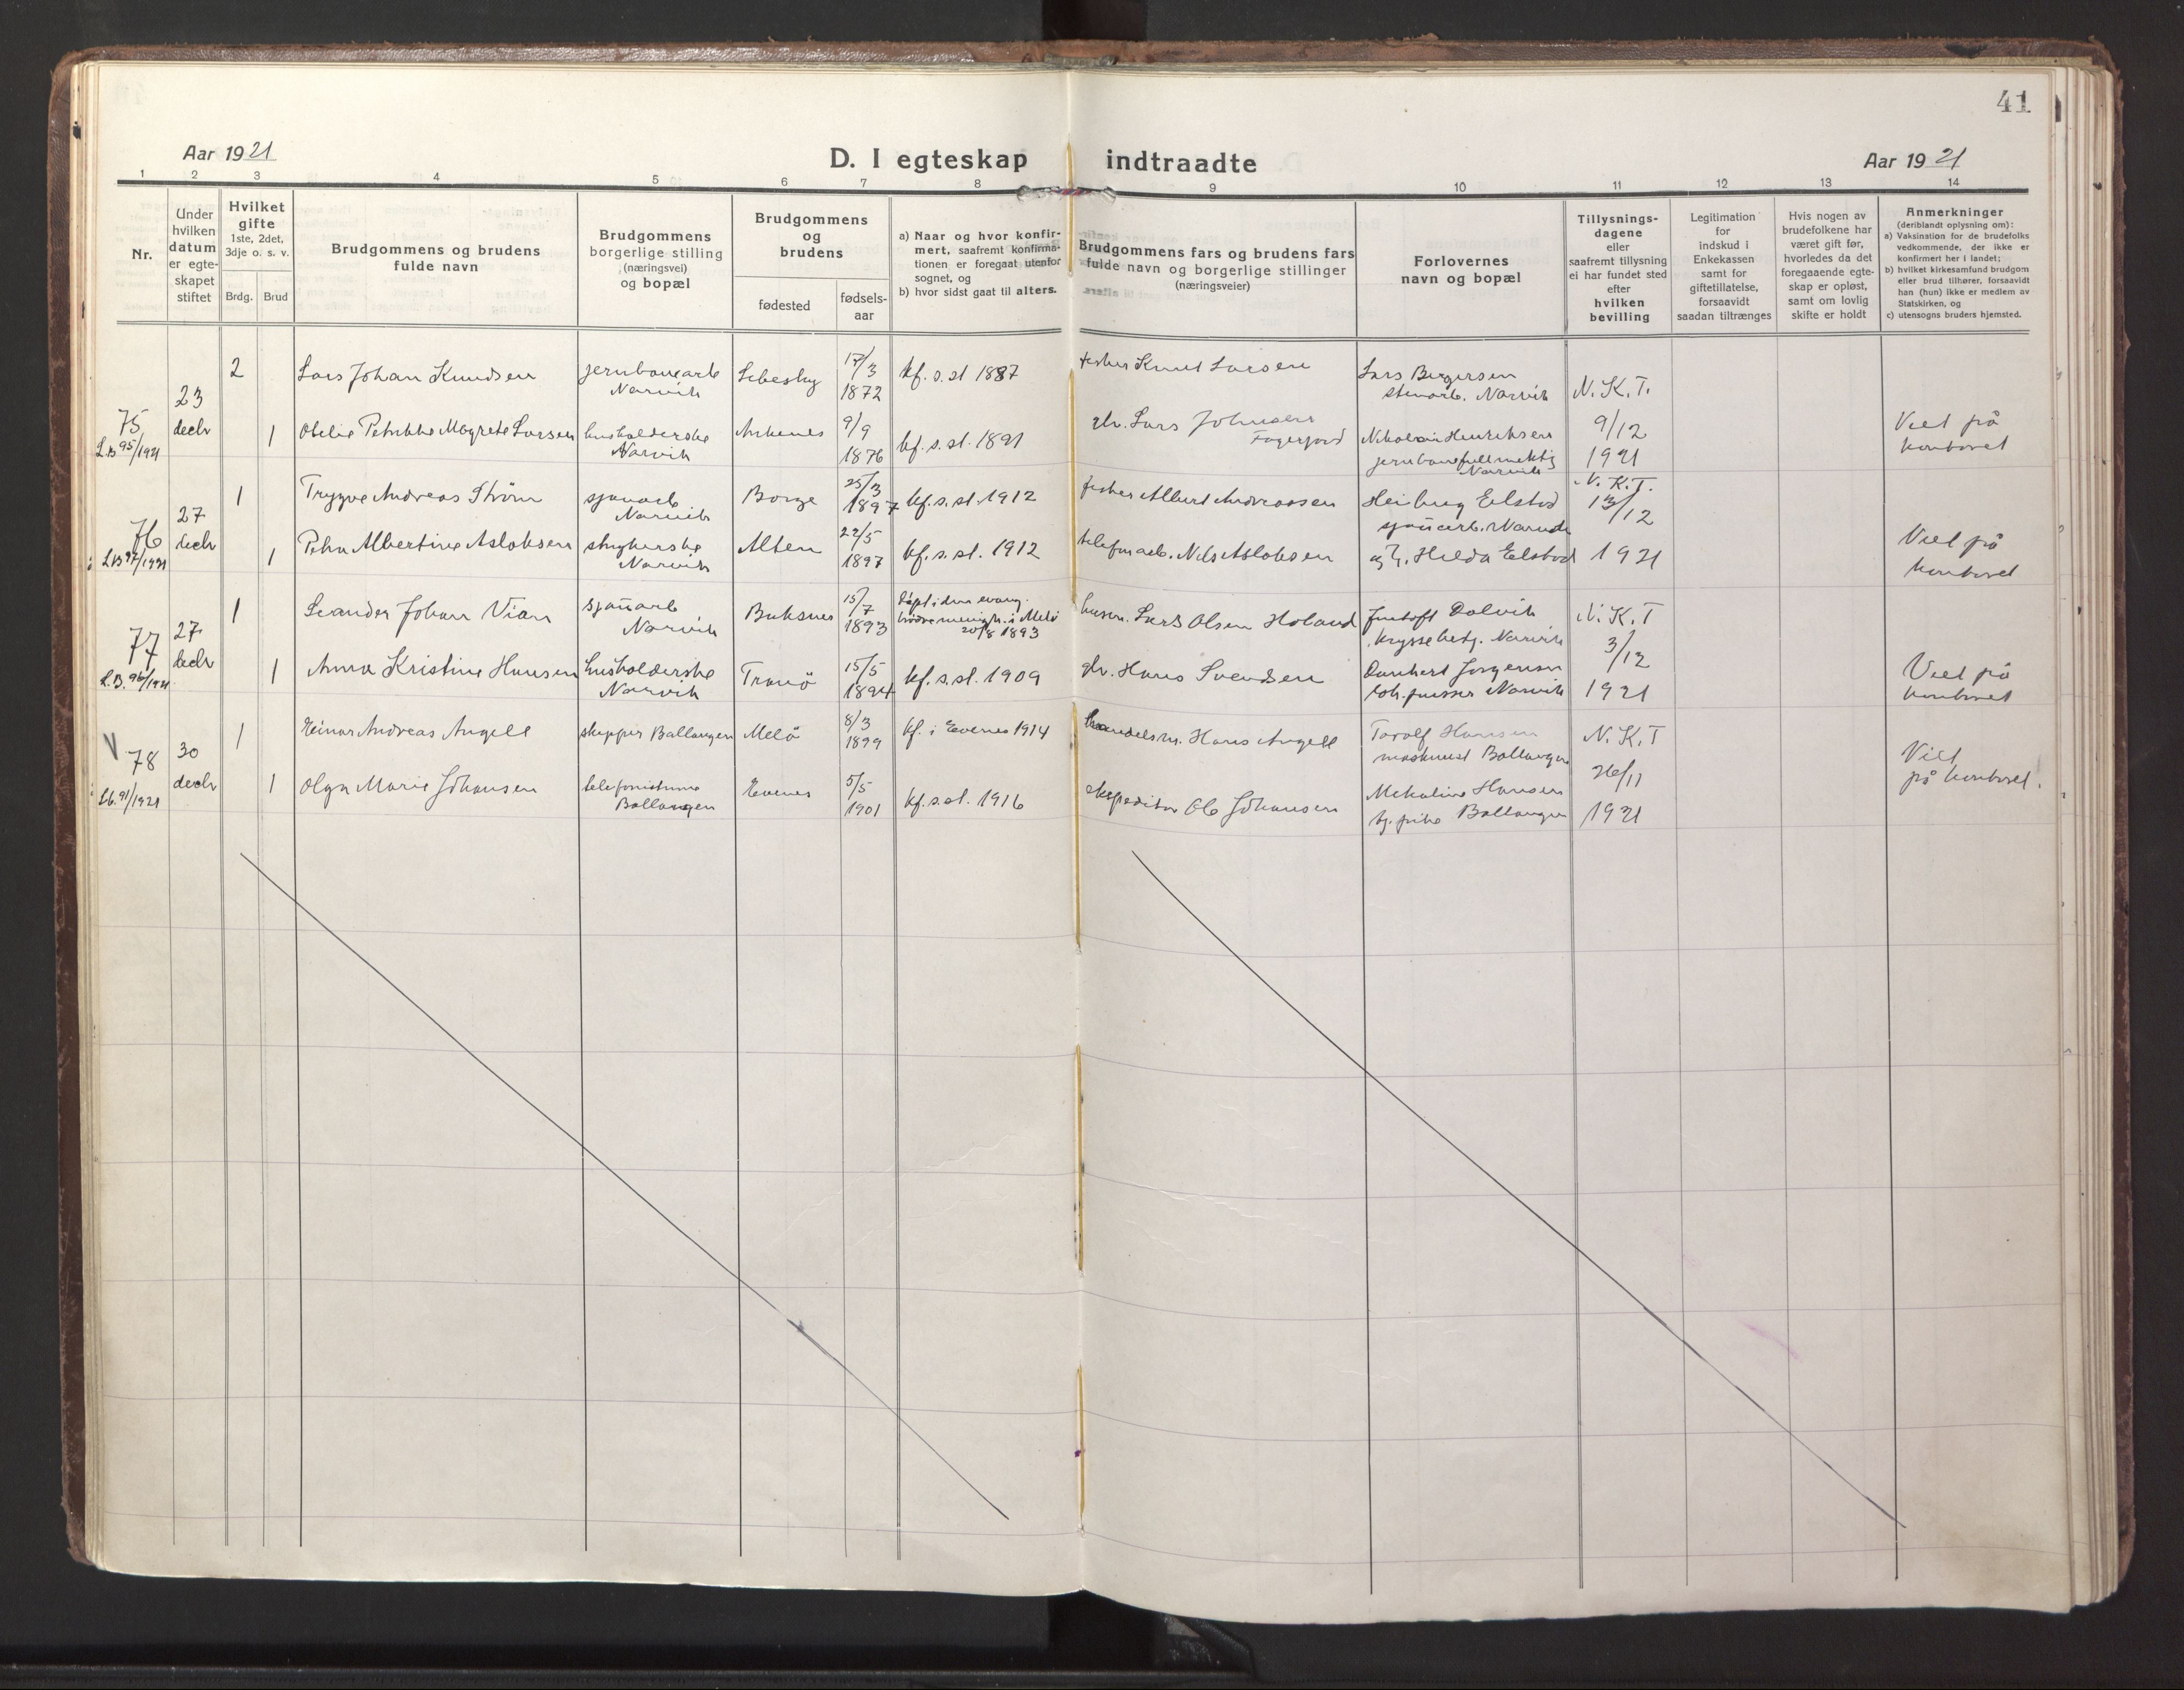 41
Aar 1921
D. I egteskap indtraadte
Aar 1921
1 2 3 4 5 6 7 8 9 10 11 12 13 14
Nr.
Under hvilken datum er egte-skapet stiftet
Hvilket gifte
1ste, 2det, 3dje o. s. v.
Brdg. Brud
Brudgommens og brudens fulde navn
Brudgommens borgerlige stilling (næringsvei) og bopæl
Brudgommens og brudens
fødested
fødsels-aar
a) Naar og hvor konfir-mert, saafremt konfirma-tionen er foregaat utenfor sognet, og
b) hvor sidst gaat til alters.
Brudgommens fars og brudens fars fulde navn og borgerlige stillinger (næringsveier)
Forlovernes navn og bopæl
Tillysnings-dagene eller saafremt tillysning ei har fundet sted efter hvilken bevilling
Legitimation for indskud i Enkekassen samt for giftetillatelse, forsaavidt saadan tiltrænges
Hvis nogen av brudefolkene har været gift før, hvorledes da det foregaaende egte-skap er opløst, samt om lovlig skifte er holdt
Anmerkninger
(deriblandt oplysning om):
a) Vaksination for de brudefolks vedkommende, der ikke er konfirmert her i landet;
b) hvilket kirkesamfund brudgom eller brud tilhører, forsaavidt han (hun) ikke er medlem av Statskirken, og
c) utensogns bruders hjemsted.
75
L.B 95/1921
23 decbr
2 Lars Johan Knudsen jernbanearb Narvik Lebesby 17/3 1872 kf. s. st 1887 fisker Knut Larsen Lars Bergersen stenarb. Narvik N. K. T.
1 Otelie Petrikke Magrete Larsen husholderske Narvik Ankenes 9/9 1876 kf. s. st. 1891 gbr. Lars Johnsen Fagerjord Nikolai Henriksen jernbanefuldmektig Narvik 9/12 1921 Viet på kontoret
76
LB 97/1921
27 decbr
1 Trygve Andreas Strøm sjauarb Narvik Borge 25/3 1897 kf. s. st. 1912 fisker Albert Andreassen Heiberg Elstad sjauarb. Narvik N. K. T. 13/12
1 Petra Albertine Aslaksen strykerske Narvik Alten 22/5 1897 kf. s. st. 1912 telefonarb. Nils Aslaksen og fr. Hilda Elstad 1921 Viet på kontoret
77
L.B. 96/1921
27 decbr
1 Leander Johan Vian sjauarb Narvik Buksnes 15/7 1893 Døpt i den evang. i Melö 20/8 1893 Lars Olsen Holand Dalvik Narvik N. K. T 3/12
1 Anna Kristine Hansen husholderske Narvik Tranö 15/5 1894 kf. s. st. 1909 gbr. Hans Svendsen Jørgensen Narvik 1921 Viet på kontoret
V 78
Lb. 91/1921
30 decbr
1 Einar Andreas Angell skipper Ballangen Melö 8/3 1899 kf. i Evenes 1914 handelsm. Hans Angell Toralf Hansen maskinist Ballangen N. K. T 26/11
1 Olga Marie Johansen telefonistinne Ballangen Evenes 5/5 1901 kf. s. st. 1916 ekspeditør Ole Johansen Mekaline Hansen Ballangen 1921 Viet på kontoret.